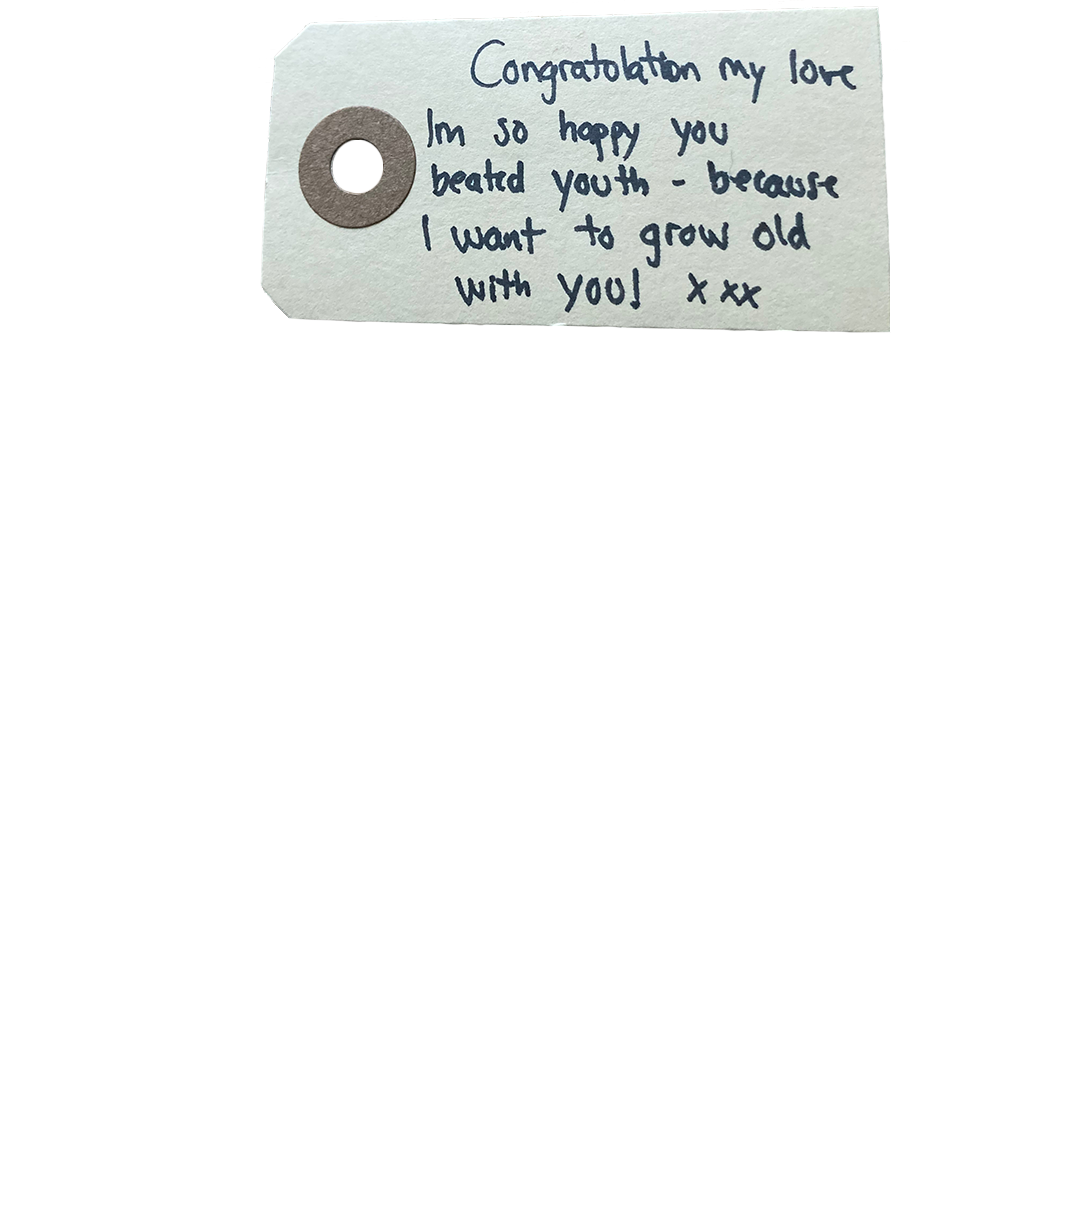 Congratolation my love
Im so happy you
beated youth - because
I want to grow old
with you! x xx